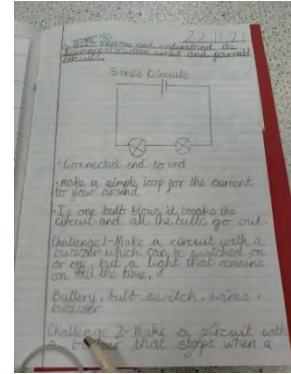 22.11.21
explore and understand the
between series and parallel
circuits.
Series Circuits
• Connected end to end
• make a simple loop for the current
to flow around
• If one bulb blows, it breaks the
circuit and all the bulbs go out.
Challenge 1-Make a circuit with a
buzzer which can be switched on
or off, but a light that remains
on all the time.
Battery, bulb, switch, wires,
buzzer
Challenge 2-Make a circuit with
a that stops when a